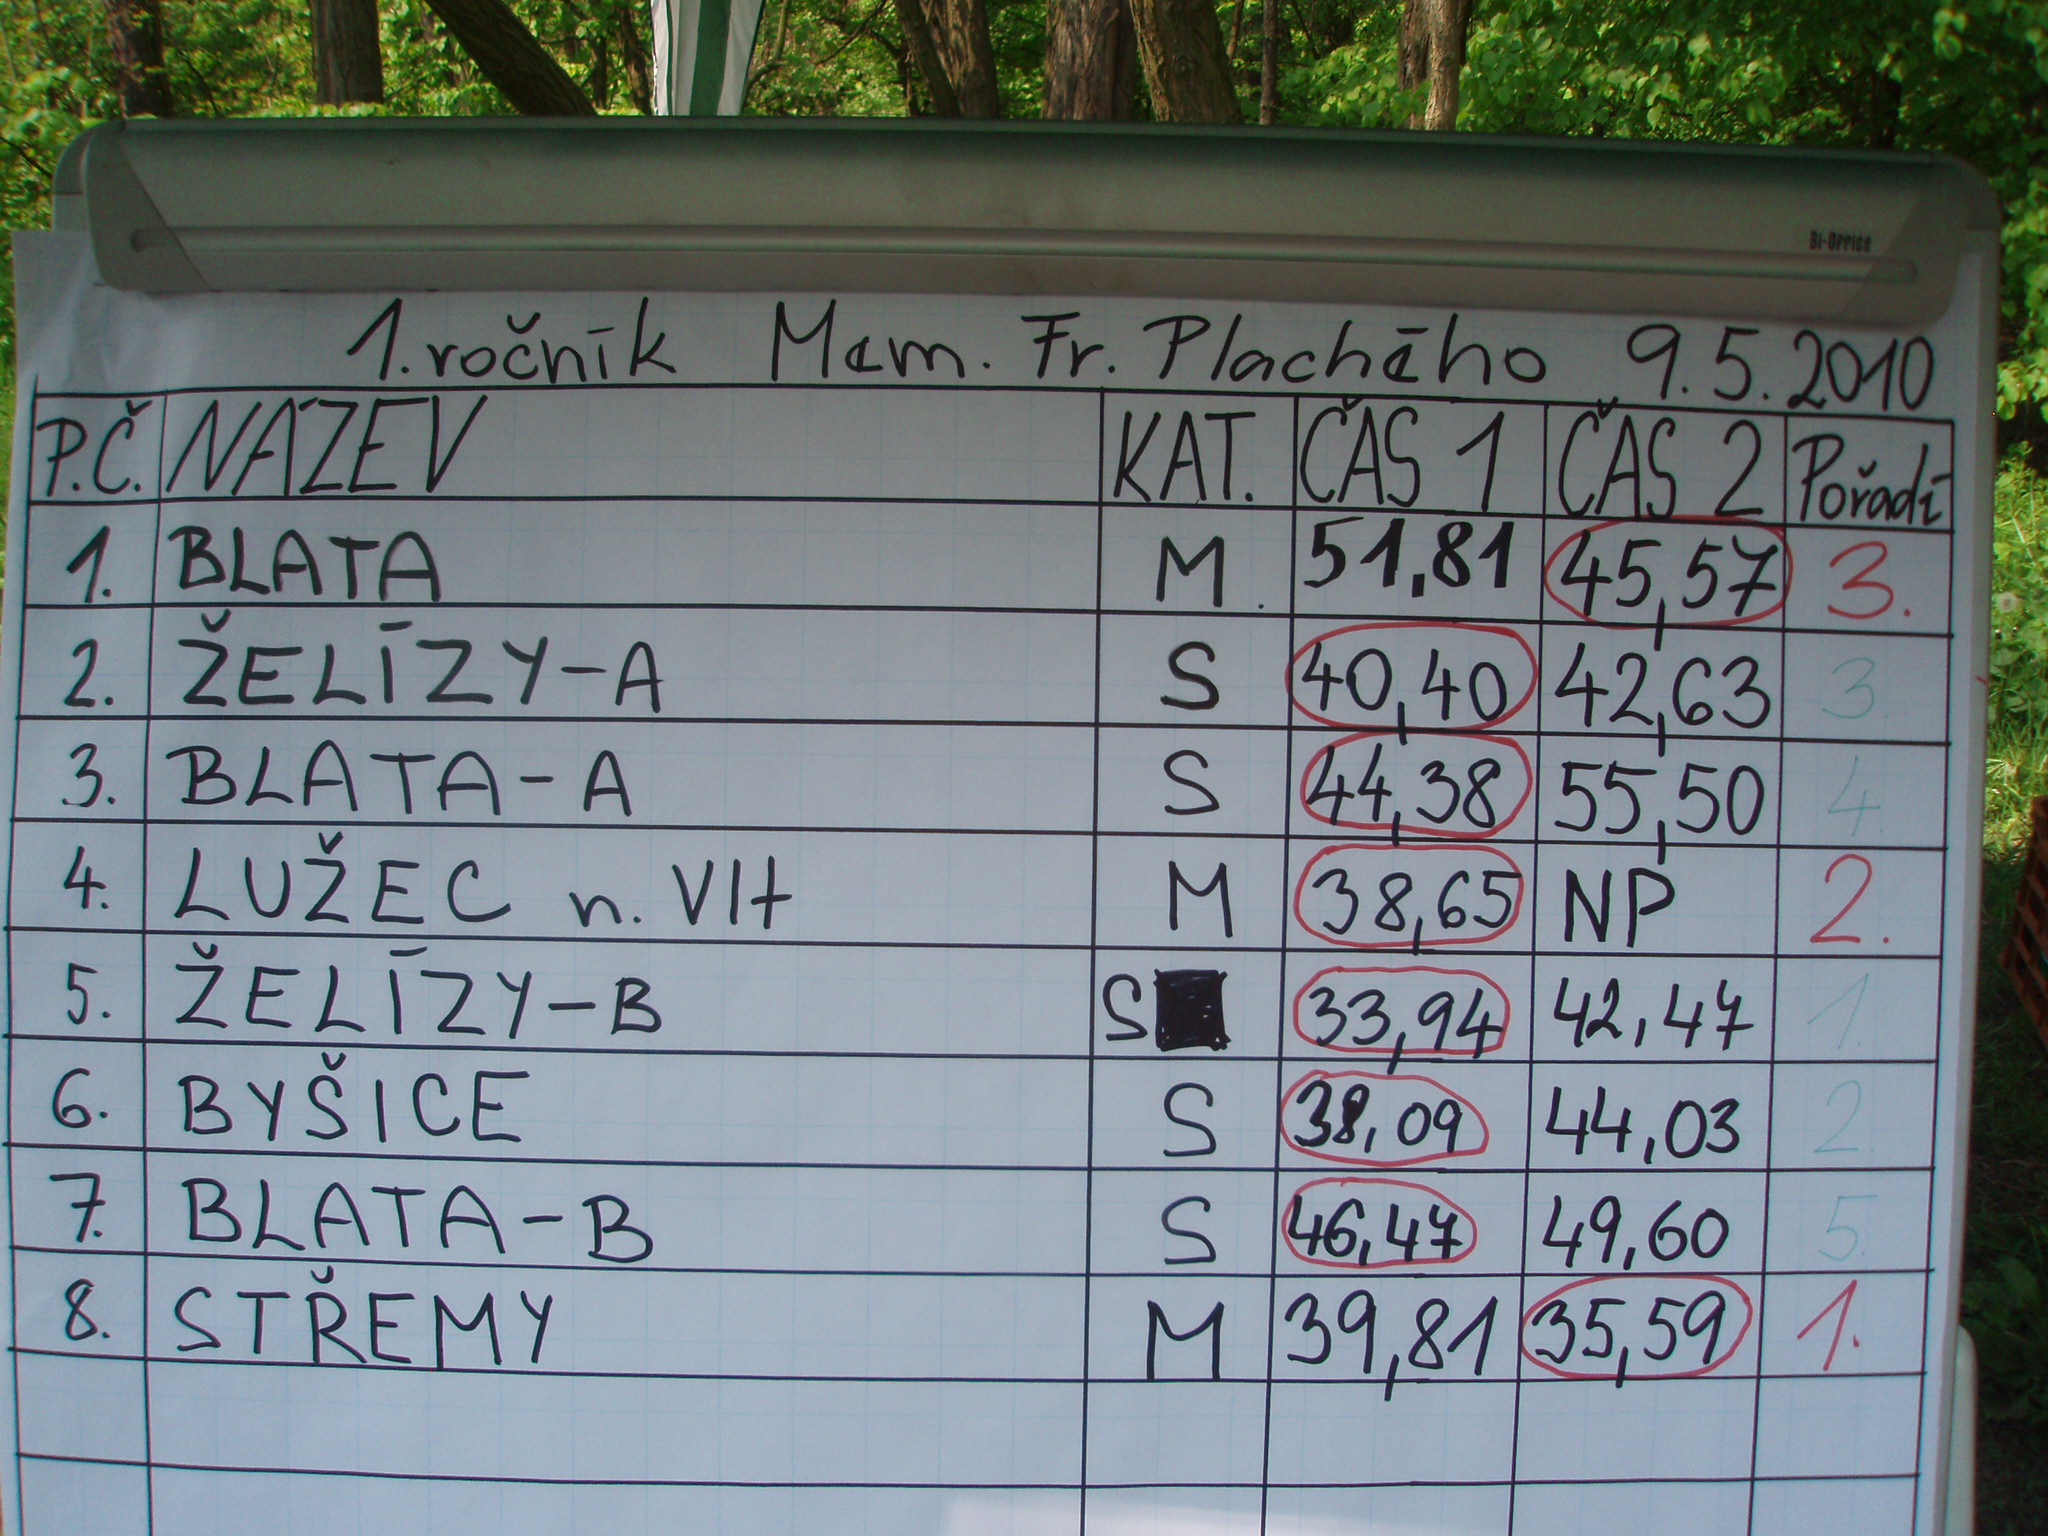 Bi-Office
1. ročník Mem. Fr. Plachého 9.5.2010
P.Č. NÁZEV KAT. ČAS 1 ČAS 2 Pořadí
1. BLATA M. 51,81 45,57 3.
2. ŽELÍZY-A S 40,40 42,63 3.
3. BLATA-A S 44,38 55,50 4.
4. LUŽEC n. Vlt M 38,65 NP 2.
5. ŽELÍZY-B S 33,94 42,47 1.
6. BYŠICE S 38,09 44,03 2.
7. BLATA-B S 46,47 49,60 5.
8. STŘEMY M 39,81 35,59 1.